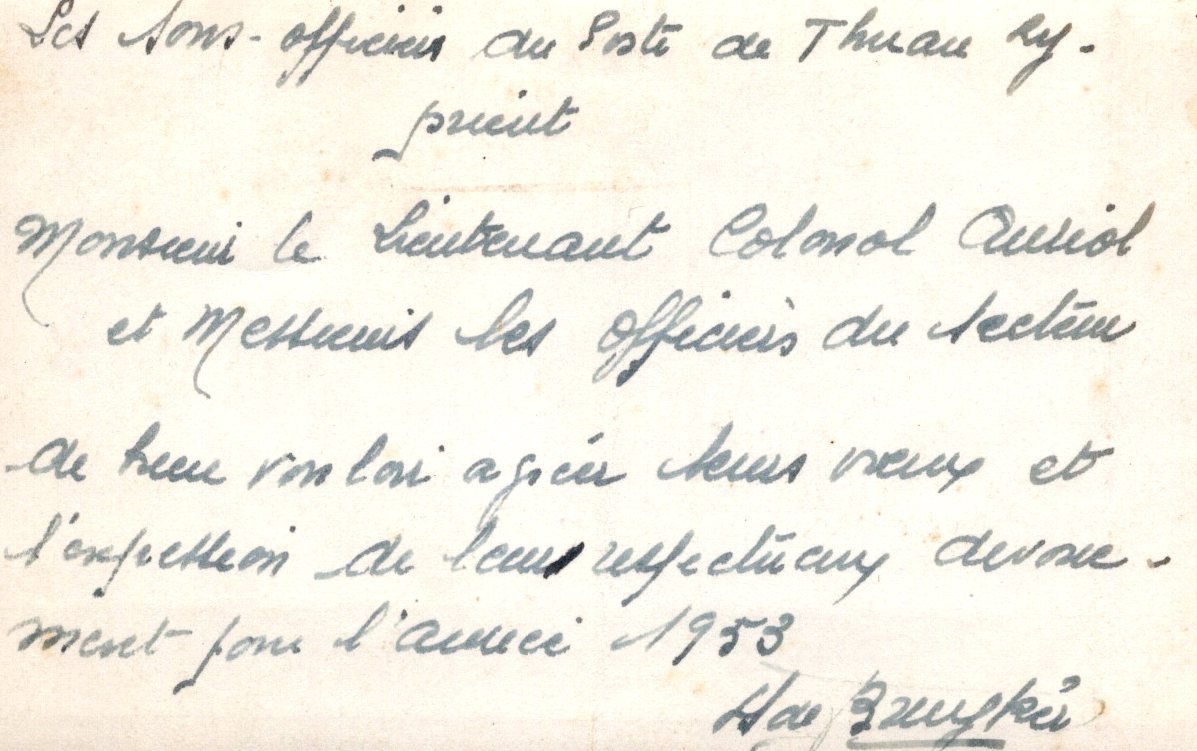 Les Sous-officiers du Poste de Thuan Ly.
prient
Monsieur le Lieutenant Colonel Auriol
et Messieurs les Officiers du Secteur
de bien vouloir agréer leurs vœux et
l'expression de leur respectueux dévoue-
ment pour l'année 1953